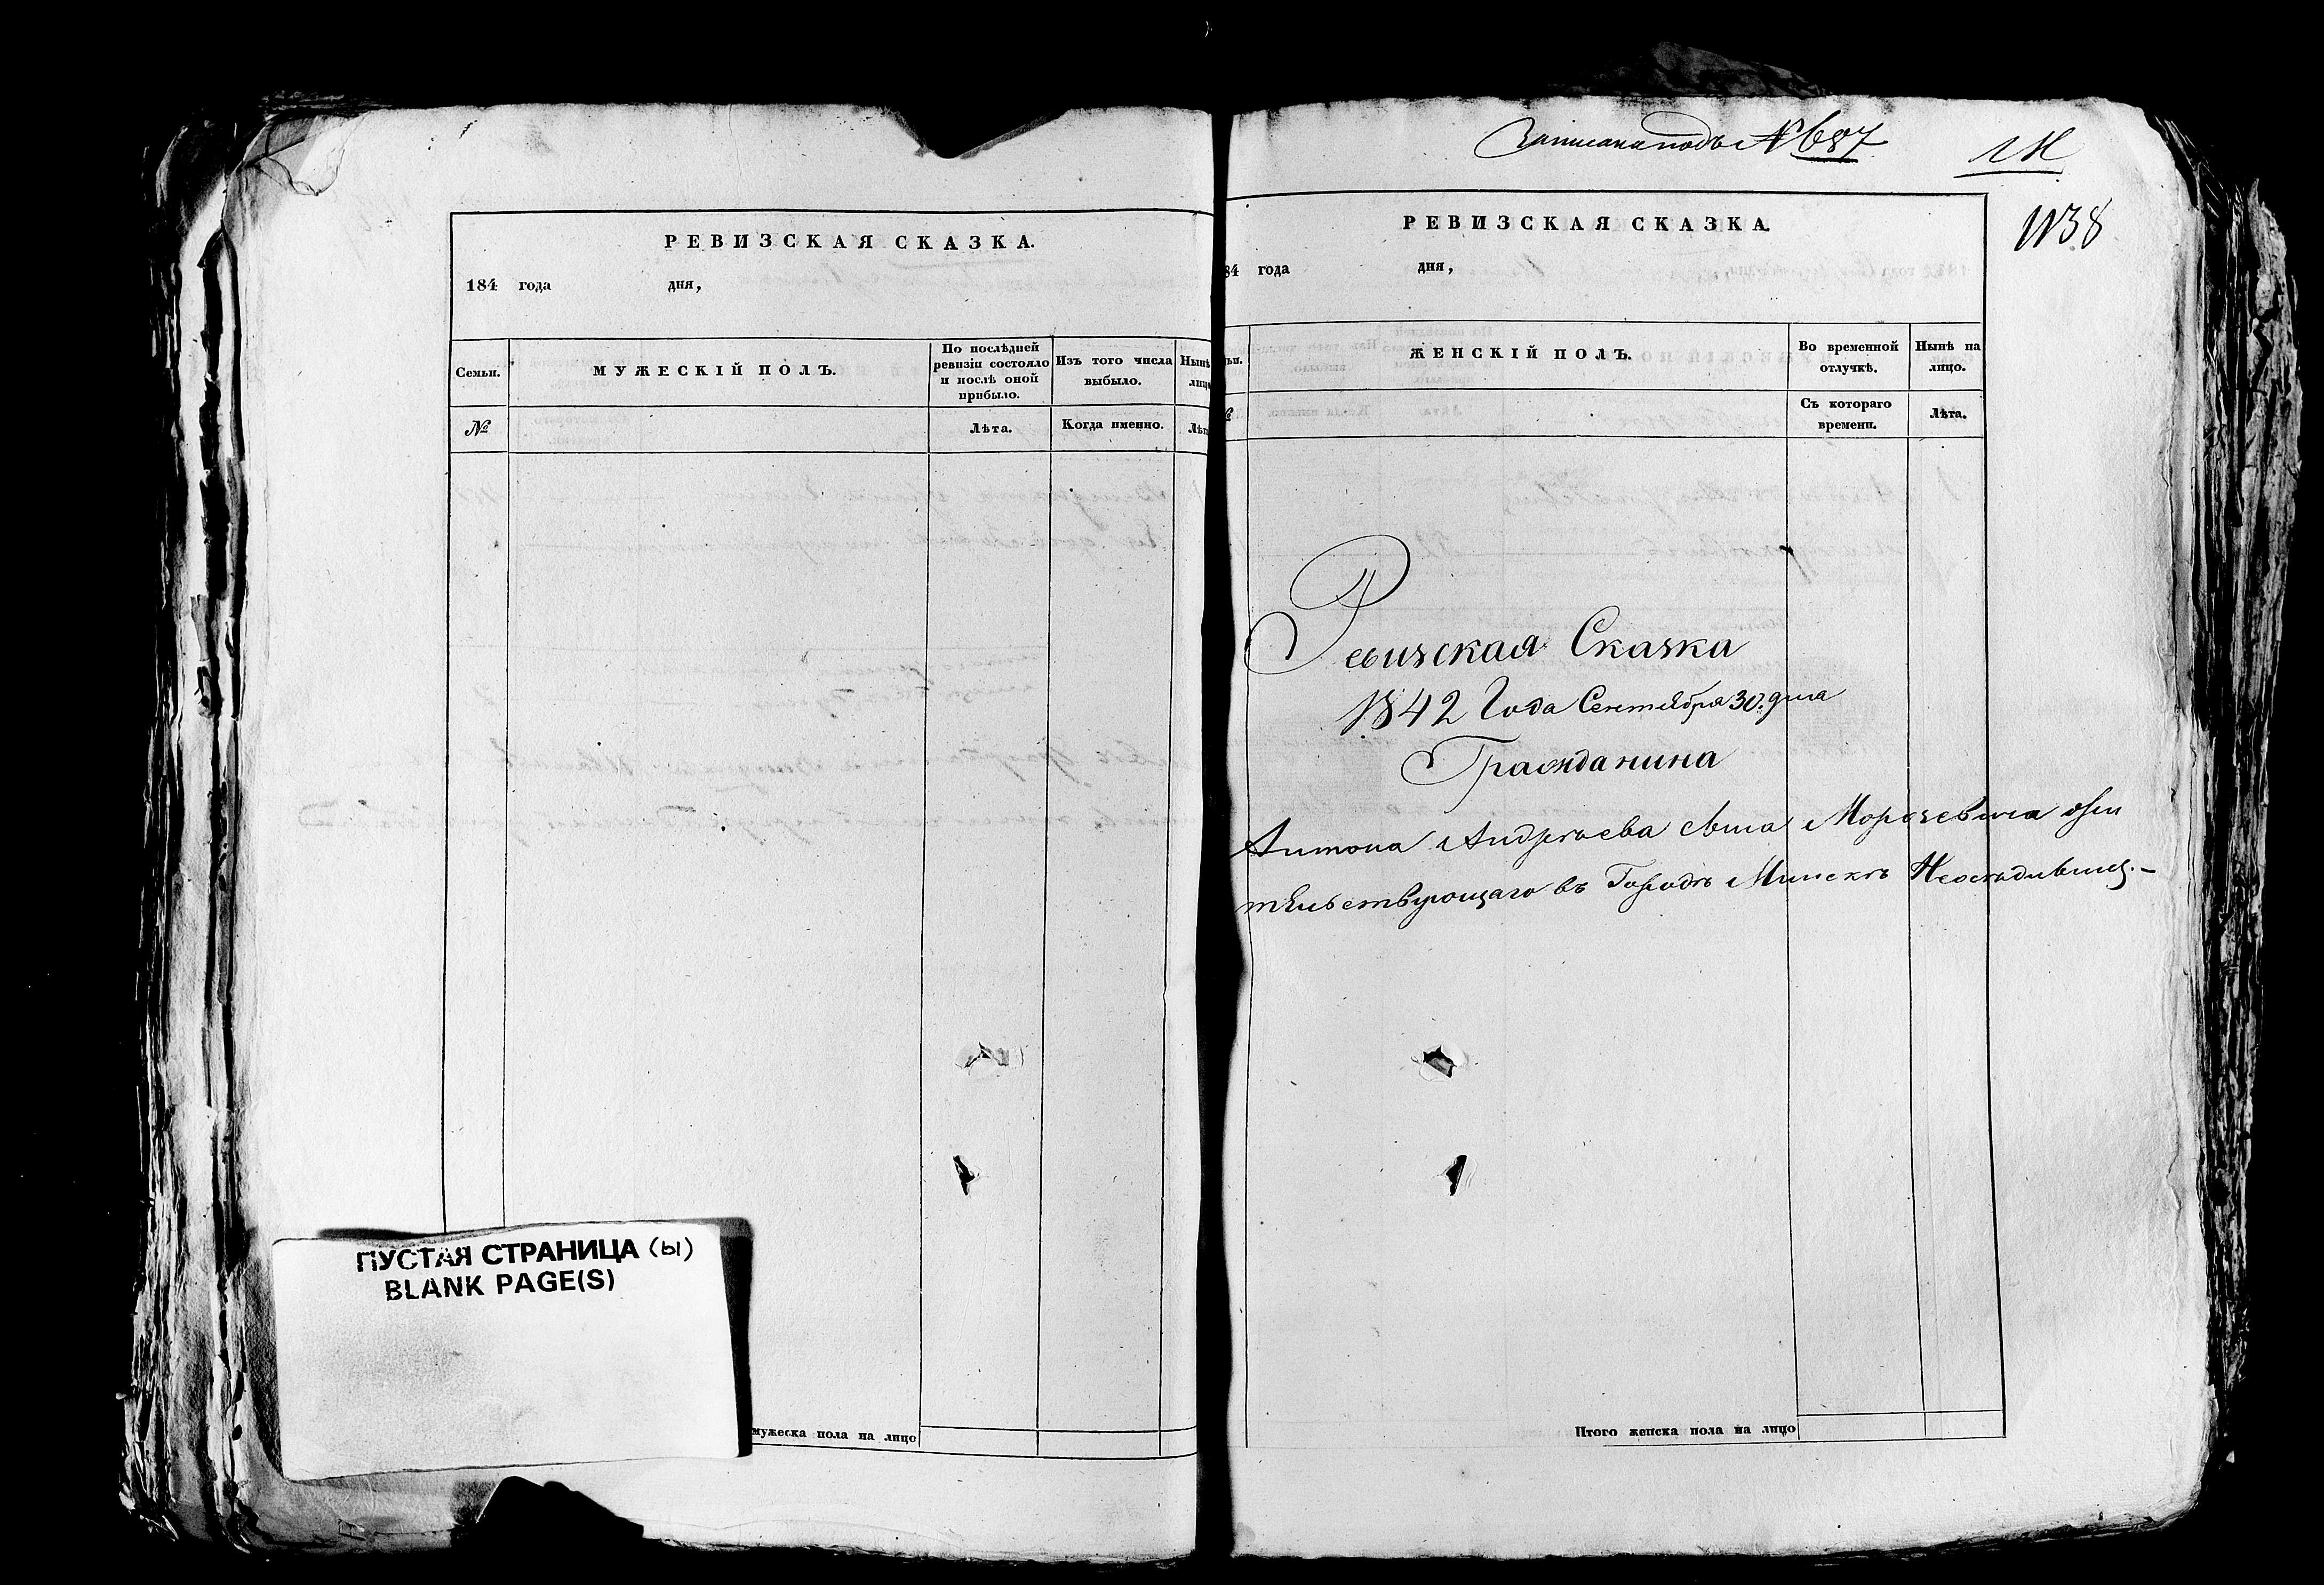 РЕВИЗСКАЯ СКАЗКА.
184 года дня,
Семьи.
МУЖЕСКІЙ ПОЛЪ.
По послѣдней ревизіи состояло и послѣ оной прибыло.
Изъ того числа выбыло.
Нынѣ
лицо
№
Лѣта.
Когда именно.
Лѣта
ПУСТАЯ СТРАНИЦА (ы)
BLANK PAGE(S)
мужеска пола на лицо
Записана подъ № 687
1138
РЕВИЗСКАЯ СКАЗКА.
84 года дня,
ЖЕНСКІЙ ПОЛЪ.
Во временной отлучкѣ.
Нынѣ на лицо.
Съ котораго времени.
Лѣта.
Ревизская Сказка
1842 Года Сентября 30. дня
Гражданина
Антона Андреева сына Морозевича жи
тельствующаго въ Городѣ Минскѣ
Итого женска пола на лицо